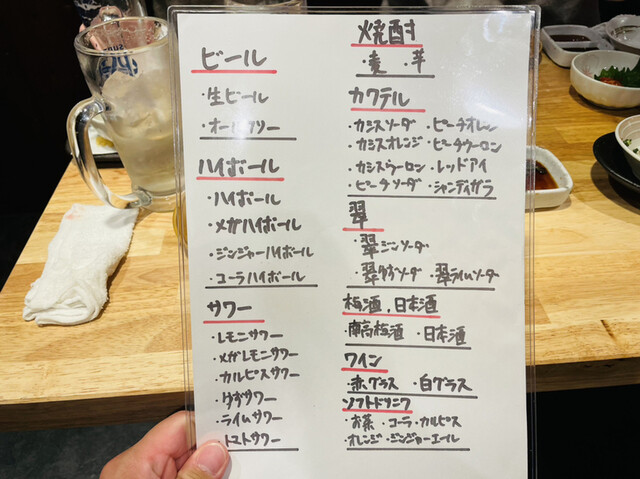 ビール
・生ビール
・オールフリー
ハイボール
・ハイボール
・メガハイボール
・ジンジャーハイボール
・コーラハイボール
サワー
・レモンサワー
・メガレモンサワー
・カルピスサワー
・ゆずサワー
・ライムサワー
・トマトサワー
焼酎
・麦 ・芋
カクテル
・カシスソーダ ・ピーチオレンジ
・カシスオレンジ ・ピーチウーロン
・カシスウーロン ・レッドアイ
・ピーチソーダ ・シャンディガフ
翠
・翠ジンソーダ
・翠ゆずソーダ ・翠ライムソーダ
梅酒、日本酒
・南高梅酒 ・日本酒
ワイン
・赤グラス ・白グラス
ソフトドリンク
・お茶 ・コーラ ・カルピス
・オレンジ ・ジンジャーエール